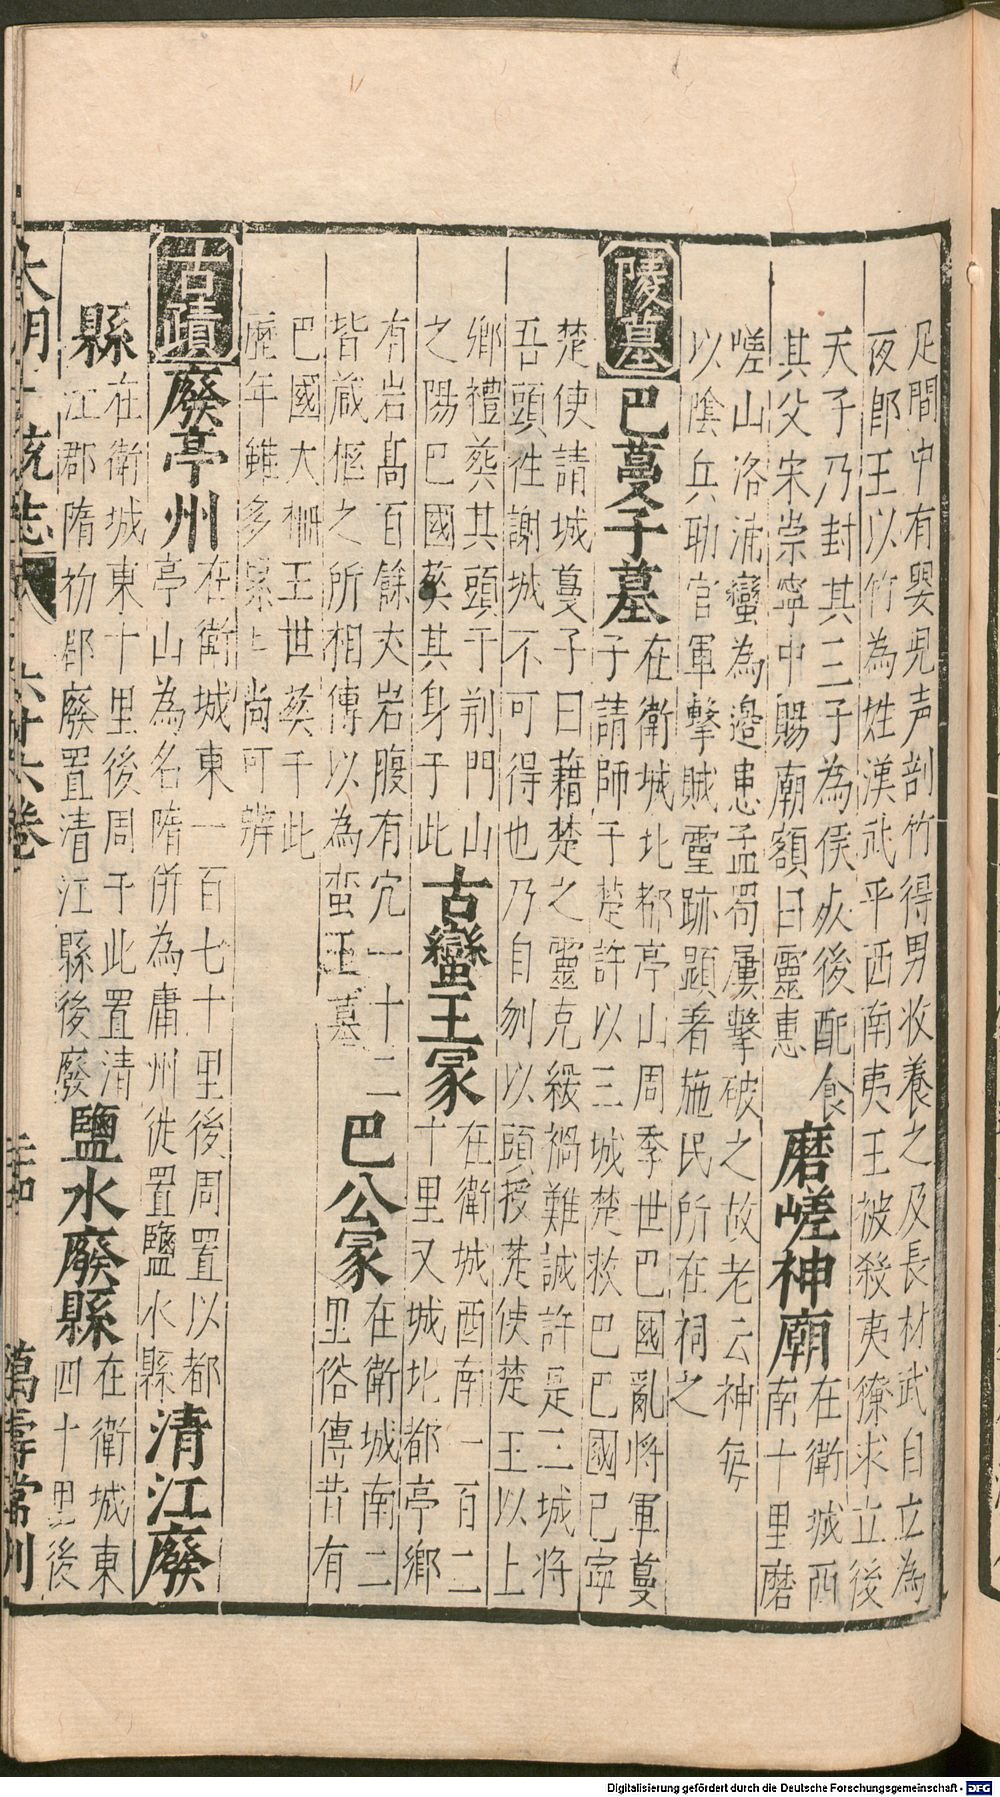 足間中有嬰兒声剖竹得男收養之及長材武自立為
夜郎王以竹為姓漢武平西南夷王被殺夷獠求立後
天子乃封其三子為侯死後配食
其父宋崇寧中賜廟額曰靈惠
磨嵯神廟
在衛城西
南十里磨
嗟山洛浦蠻為邉患孟蜀屢擊破之故老云神每
以陰兵助官軍擊賊靈跡顕着施民所在祠之
陵墓
巴蔓子墓
在衛城北都亭山周季世巴國亂將軍蔓
子請師于楚許以三城楚救巴巴國已寧
楚使請城蔓子曰藉楚之靈克緩禍難誠許是三城将
吾頭往謝城不可得也乃自刎以頭授楚使楚王以上
鄉禮葬其頭于荆門山
之陽巴國葬其身于此
古蠻王冢
在衛城西南一百二
十里又城北都亭鄉
有岩髙百餘丈岩腹有穴一十二
皆藏柩之所相傳以為蛮王墓
巴公冢
在衛城南二
里俗傳昔有
巴國大柵王世葬于此
歷年雖多累土尚可辨
古蹟
廢亭州
在衛城東一百七十里後周置以都
亭山為名隋併為庸州徙置鹽水縣
清江廢
縣
在衛城東十里後周于此置清
江郡隋初郡廢置清江縣後廢
鹽水廢縣
在衛城東
四十里後
大明一統志
六十六卷
萬壽常刊
Digitalisierung gefördert durch die Deutsche Forschungsgemeinschaft - DFG